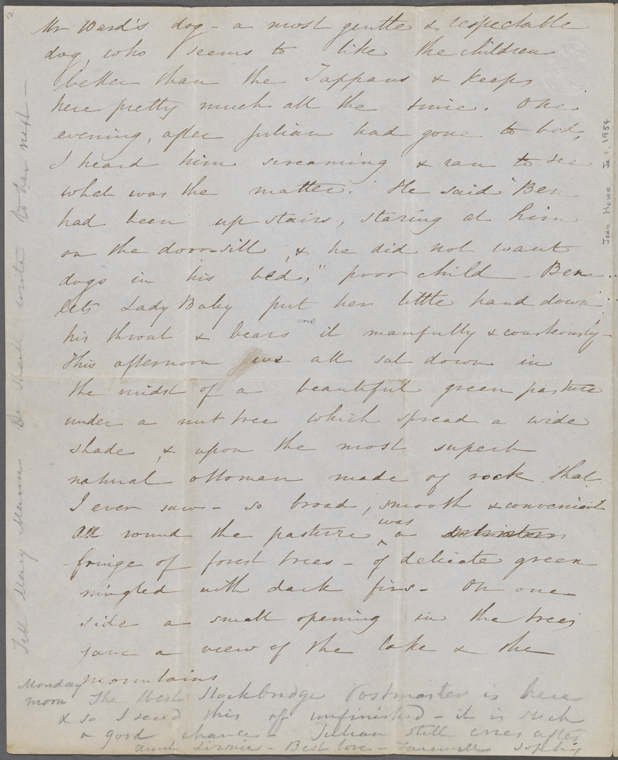 Mr Ward's dog - a most gentle & respectable
dog, who seems to like the children
better than the Tappans & keeps
here pretty much all the time. One
evening, after Julian had gone to bed,
I heard him screaming & ran to see
what was the matter. He said "Ben
had been up stairs, staring at him
on the doorsill, & he did not want
dogs in his bed," poor child - Ben
lets Lady Baby put her little hand down
his throat & bears it manfully & courteously -
This afternoon we all sat down in
the midst of a beautiful green pasture
under a nut tree which spread a wide
shade, & upon the most superb
natural ottoman made of rock that
I ever saw - so broad, smooth & convenient
All round the pasture was a
fringe of forest trees - of delicate green
mingled with dark firs - On one
side a small opening in the trees
gave a view of the lake & the
mountains
Monday
noon The West Stockbridge Postmaster is here
& so I send this off unfinished - it is such
a good chance - Julian still cries after
aunt Lizzie - Best love - Farewell Sophy
Tell Mary Mann We shall write to her next -